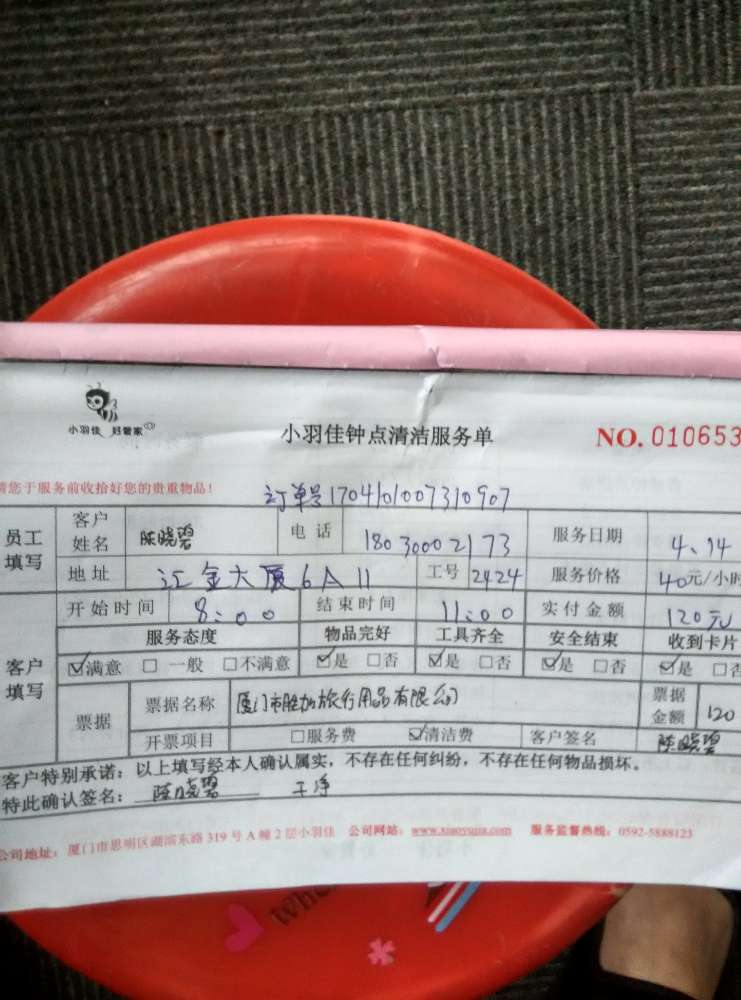 小羽佳 好管家
小羽佳钟点清洁服务单
NO. 010653
请您于服务前收拾好您的贵重物品!
订单号1704101007310907
员工填写 客户姓名 陈晓碧 电话 18030002173 服务日期 4.14
地址 汇金大厦6A11 工号 2424 服务价格 40元/小时
开始时间 8:00 结束时间 11:00 实付金额 120元
客户填写 服务态度 物品完好 工具齐全 安全结束 收到卡片
☑满意 □一般 □不满意 ☑是 □否 ☑是 □否 ☑是 □否 ☑是 □否
票据 票据名称 厦门市胜加旅行用品有限公司 票据金额 120
开票项目 □服务费 ☑清洁费 客户签名 陈晓碧
客户特别承诺:以上填写经本人确认属实,不存在任何纠纷,不存在任何物品损坏。
特此确认签名: 陈晓碧 干净
公司地址:厦门市思明区湖滨东路319号A幢2层小羽佳 公司网站:www.xiaoyujia.com 服务监督热线:0592-5888123